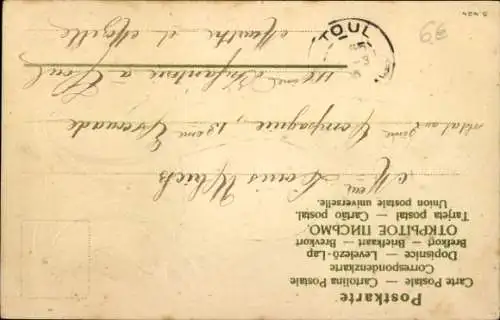 Postkarte
Carte Postale — Cartolina Postale
Correspondenzkarte
Dopisnice — Levelező-Lap
Brefkog — Briefkaart — Brevkort
ОТКРЫТОЕ ПИСЬМО.
Tarjeta postal — Cartão postal.
Union postale universelle.
Louis
soldat au ème Compagnie, 13 ème
Infanterie à Toul
Meurthe et Moselle
TOUL
6€